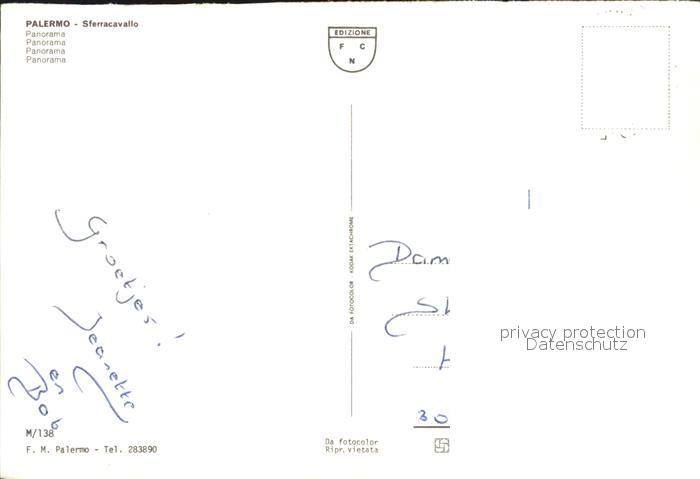 PALERMO - Sferracavallo
Panorama
Panorama
Panorama
Panorama
EDIZIONE
F C
N
DA FOTOCOLOR KODAK EKTACHROME
Groetjes!
Jeanette
en
Bob
Dam
30
privacy protection
Datenschutz
M/138
F. M. Palermo - Tel. 283890
Da fotocolor
Ripr. vietata